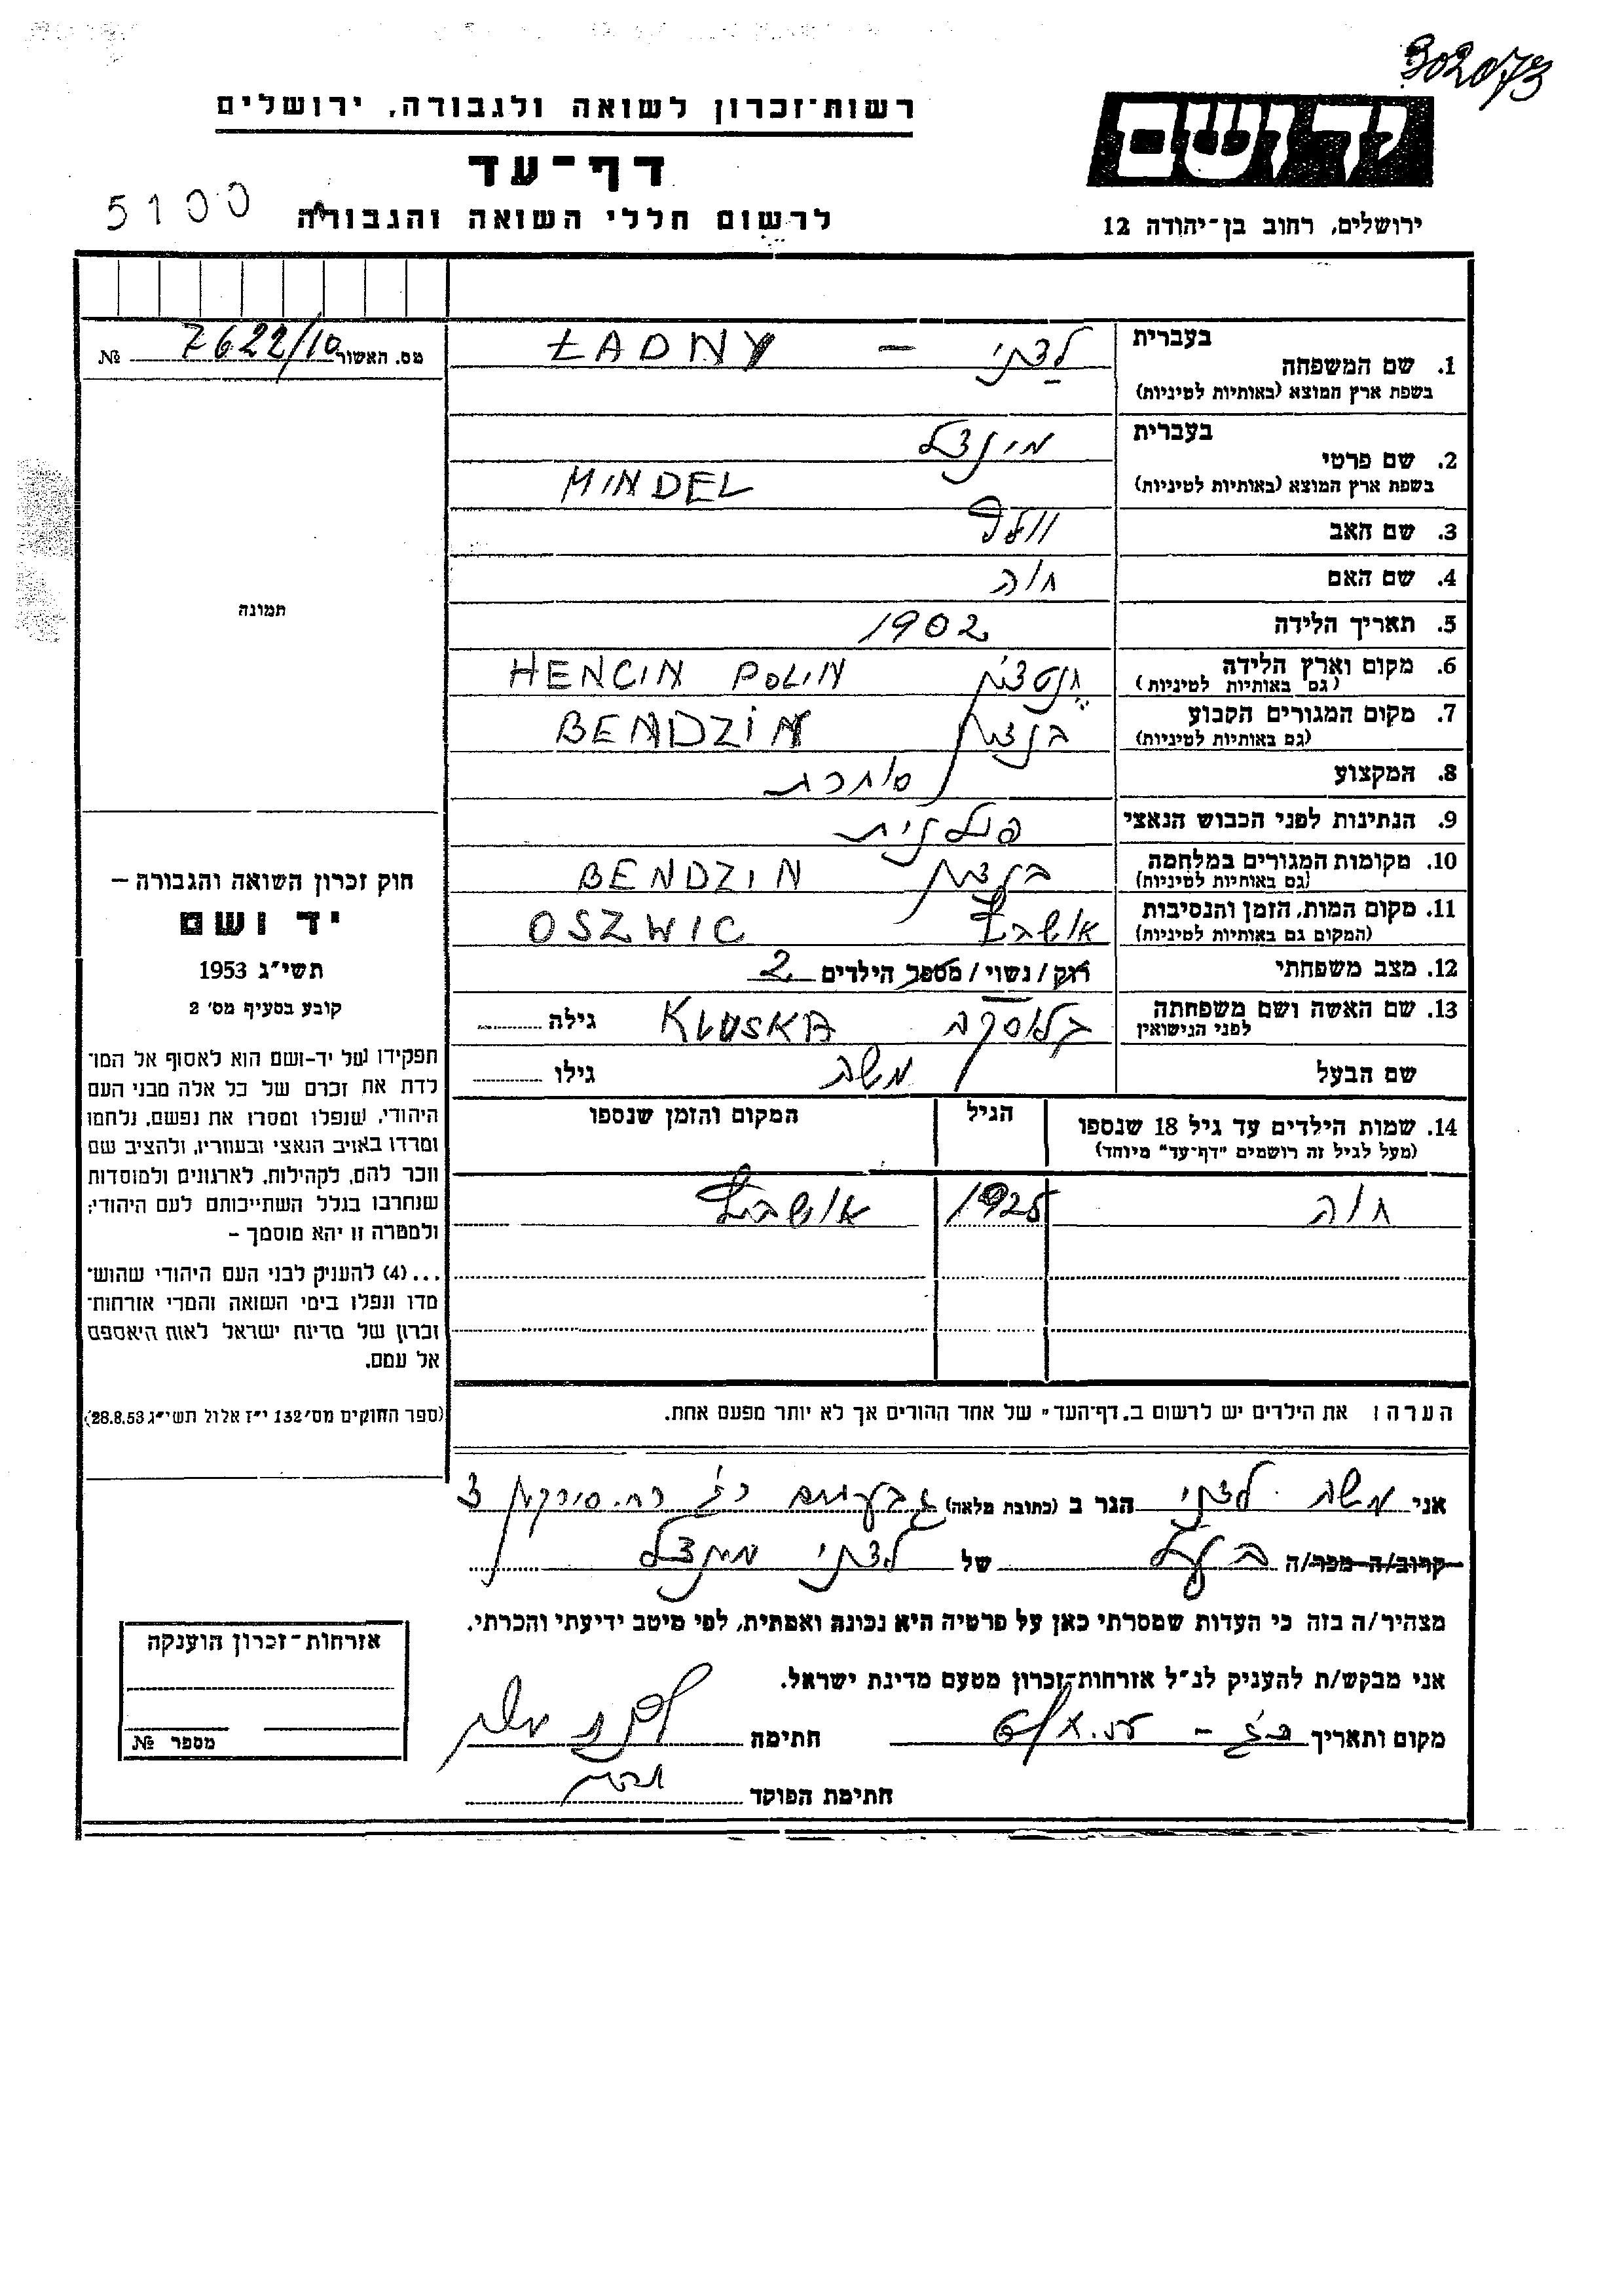 302073
רשות־זכרון לשואה ולגבורה, ירושלים
יד ושם
דף־עד
5100
לרשום חללי השואה והגבורה
ירושלים, רחוב בן־יהודה 12
מס. האשור 7622/10 №
בעברית
1. שם המשפחה לדני – ŁADNY
בשפת ארץ המוצא (באותיות לטיניות)
בעברית מינדל
2. שם פרטי
בשפת ארץ המוצא (באותיות לטיניות) MINDEL
3. שם האב וולף
4. שם האם חוה
5. תאריך הלידה 1902
6. מקום וארץ הלידה HENCIN POLIN
(גם באותיות לטיניות)
7. מקום המגורים הקבוע בנדצין BENDZIN
(גם באותיות לטיניות)
8. המקצוע סוחרת
9. הנתינות לפני הכבוש הנאצי פולנית
10. מקומות המגורים במלחמה בנדצין BENDZIN
(גם באותיות לטיניות)
11. מקום המות, הזמן והנסיבות אושביץ OSZWIC
(המקום גם באותיות לטיניות)
12. מצב משפחתי רוק / נשוי / מספר הילדים 2
13. שם האשה ושם משפחתה קלוסקה KLUSKA גילה
לפני הנישואין
שם הבעל משה גילו
14. שמות הילדים עד גיל 18 שנספו הגיל המקום והזמן שנספו
(מעל לגיל זה רושמים "דף־עד" מיוחד)
חוה 1925 אושביץ
הערה: את הילדים יש לרשום ב„דף־העד" של אחד ההורים אך לא יותר מפעם אחת.
תמונה
חוק זכרון השואה והגבורה –
יד ושם
תשי״ג 1953
קובע בסעיף מס׳ 2
תפקידו של יד-ושם הוא לאסוף אל המו־
לדת את זכרם של כל אלה מבני העם
היהודי, שנפלו ומסרו את נפשם, נלחמו
ומרדו באויב הנאצי ובעוזריו, ולהציב שם
וזכר להם, לקהילות, לארגונים ולמוסדות
שנחרבו בגלל השתייכותם לעם היהודי;
ולמטרה זו יהא מוסמך –
...(4) להעניק לבני העם היהודי שהוש־
מדו ונפלו בימי השואה והמרי אזרחות־
זכרון של מדינת ישראל לאות היאספם
אל עמם.
(ספר החוקים מס׳ 132 י״ז אלול תשי״ג 28.8.53)
אני משה לדני הגר ב (כתובת מלאה) גבעתיים רח. סירקין 3
קרוב/ה מכר/ה בעל של לדני מינדל
מצהיר/ה בזה כי העדות שמסרתי כאן על פרטיה היא נכונה ואמתית, לפי מיטב ידיעתי והכרתי.
אני מבקש/ת להעניק לנ״ל אזרחות־זכרון מטעם מדינת ישראל.
מקום ותאריך חתימה לדני משה
חתימת הפוקד
אזרחות־זכרון הוענקה
מספר №